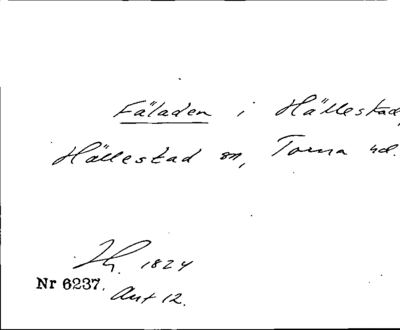 Fäladen i Hällestad,
Hällestad sn, Torna hd.
Jh. 1824
Nr 6237.
Ant 12.